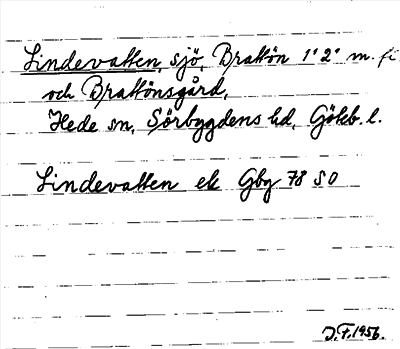 Lindevatten, sjö, Brattön 1¹ 2² m. fl
och Brattönsgård,
Hede sn, Sörbygdens hd, Götеb. l.
Lindevatten ek Gbg 78 SO
J.F. 1956.